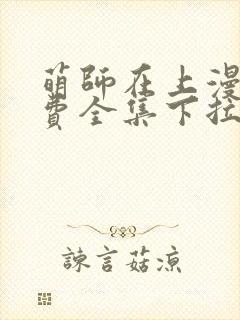 萌師在上漫
費全集下拉
諫言菇涼